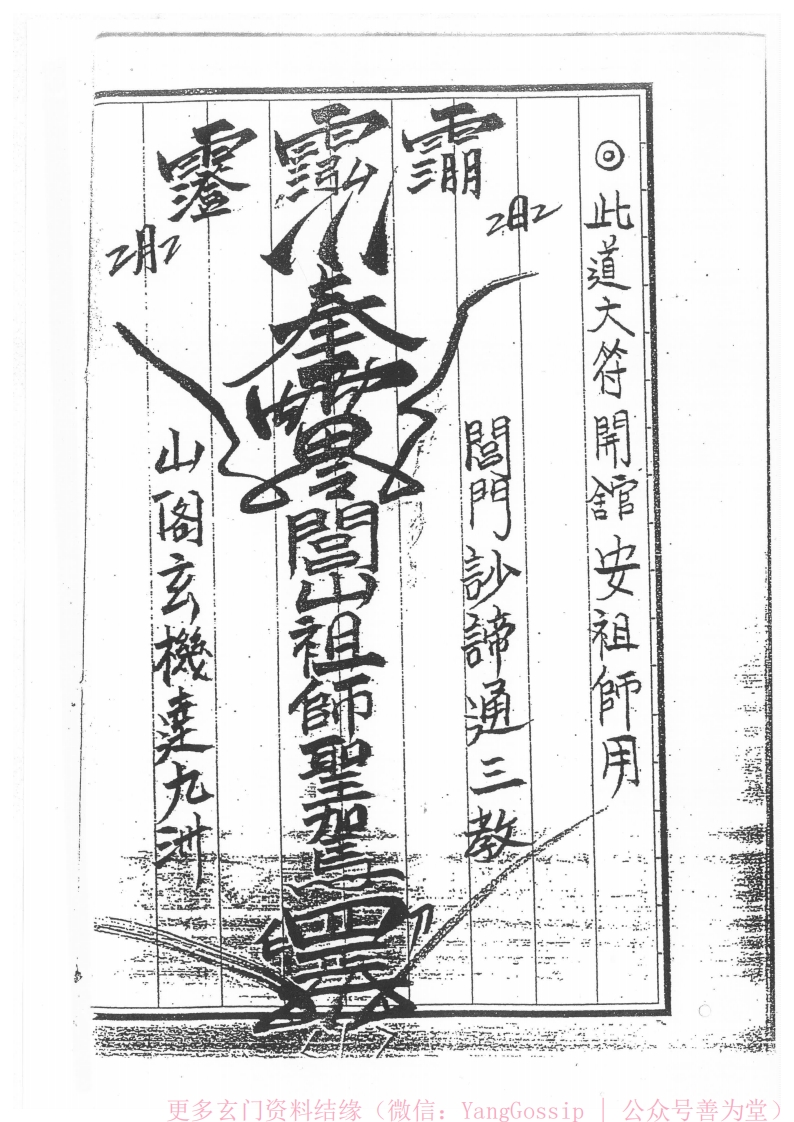 ◎此道大符開舘安祖師用
日
閭門訬諦通三教
奉
閭山祖師聖駕
月
山閣玄機達九洲
更多玄门资料结缘（微信：YangGossip | 公众号善为堂）